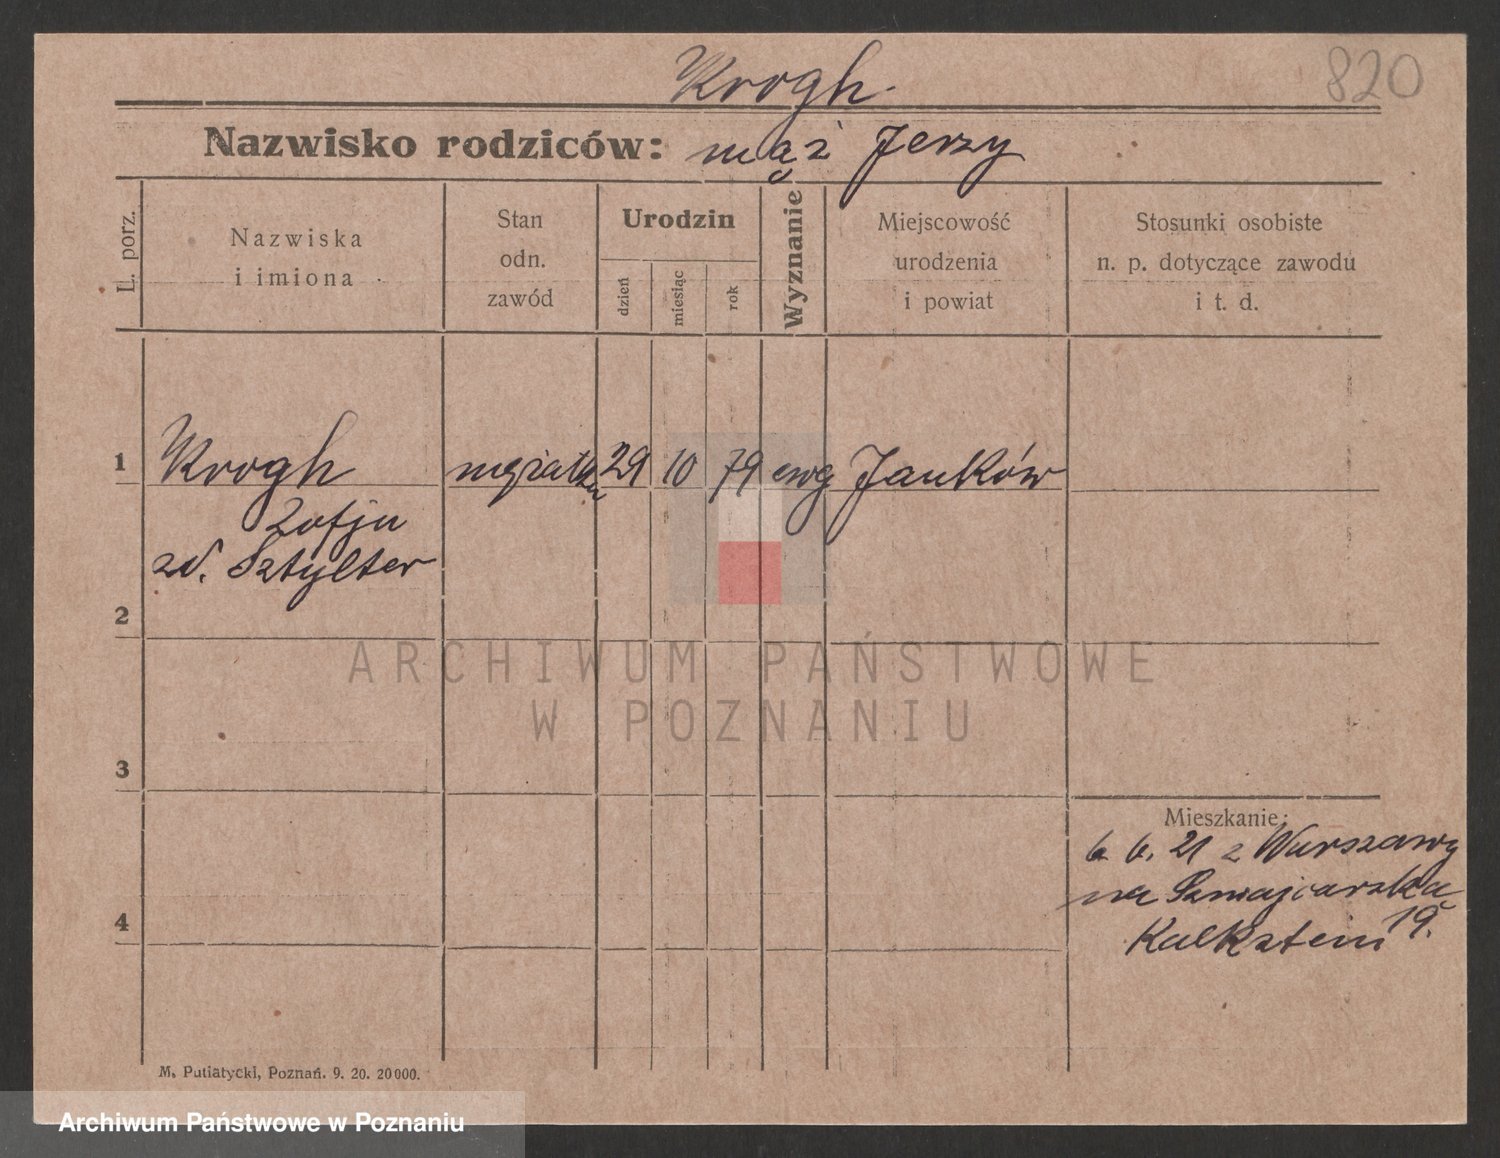 Krogh.
820
Nazwisko rodziców: mąż Jerzy
L. porz.
Nazwiska
i imiona
Stan
odn.
zawód
Urodzin
dzień
miesiąc
rok
Wyznanie
Miejscowość
urodzenia
i powiat
Stosunki osobiste
n. p. dotyczące zawodu
i t. d.
1 Krogh mężatka 29 10 79 ewg Janków
Zofja
zd. Sztylter
2
3
4
Mieszkanie:
6. 6. 21 z Warszawy
na Szwajcarska
19.
Kalkstein
ARCHIWUM PAŃSTWOWE
W POZNANIU
M. Putiatycki, Poznań. 9. 20. 20000.
Archiwum Państwowe w Poznaniu